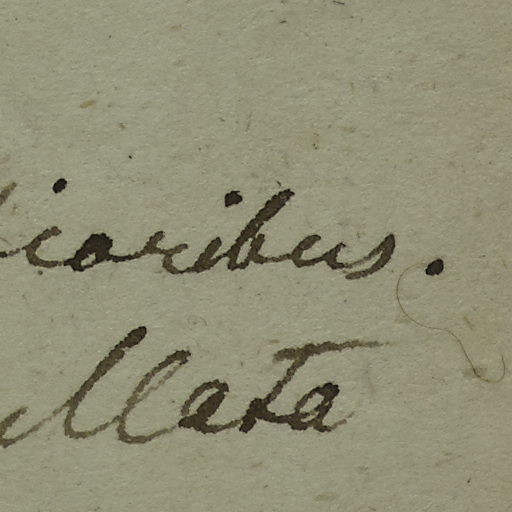 icoribus.
llata